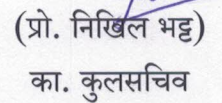 (प्रो. निखिल भट्ट)
का. कुलसचिव